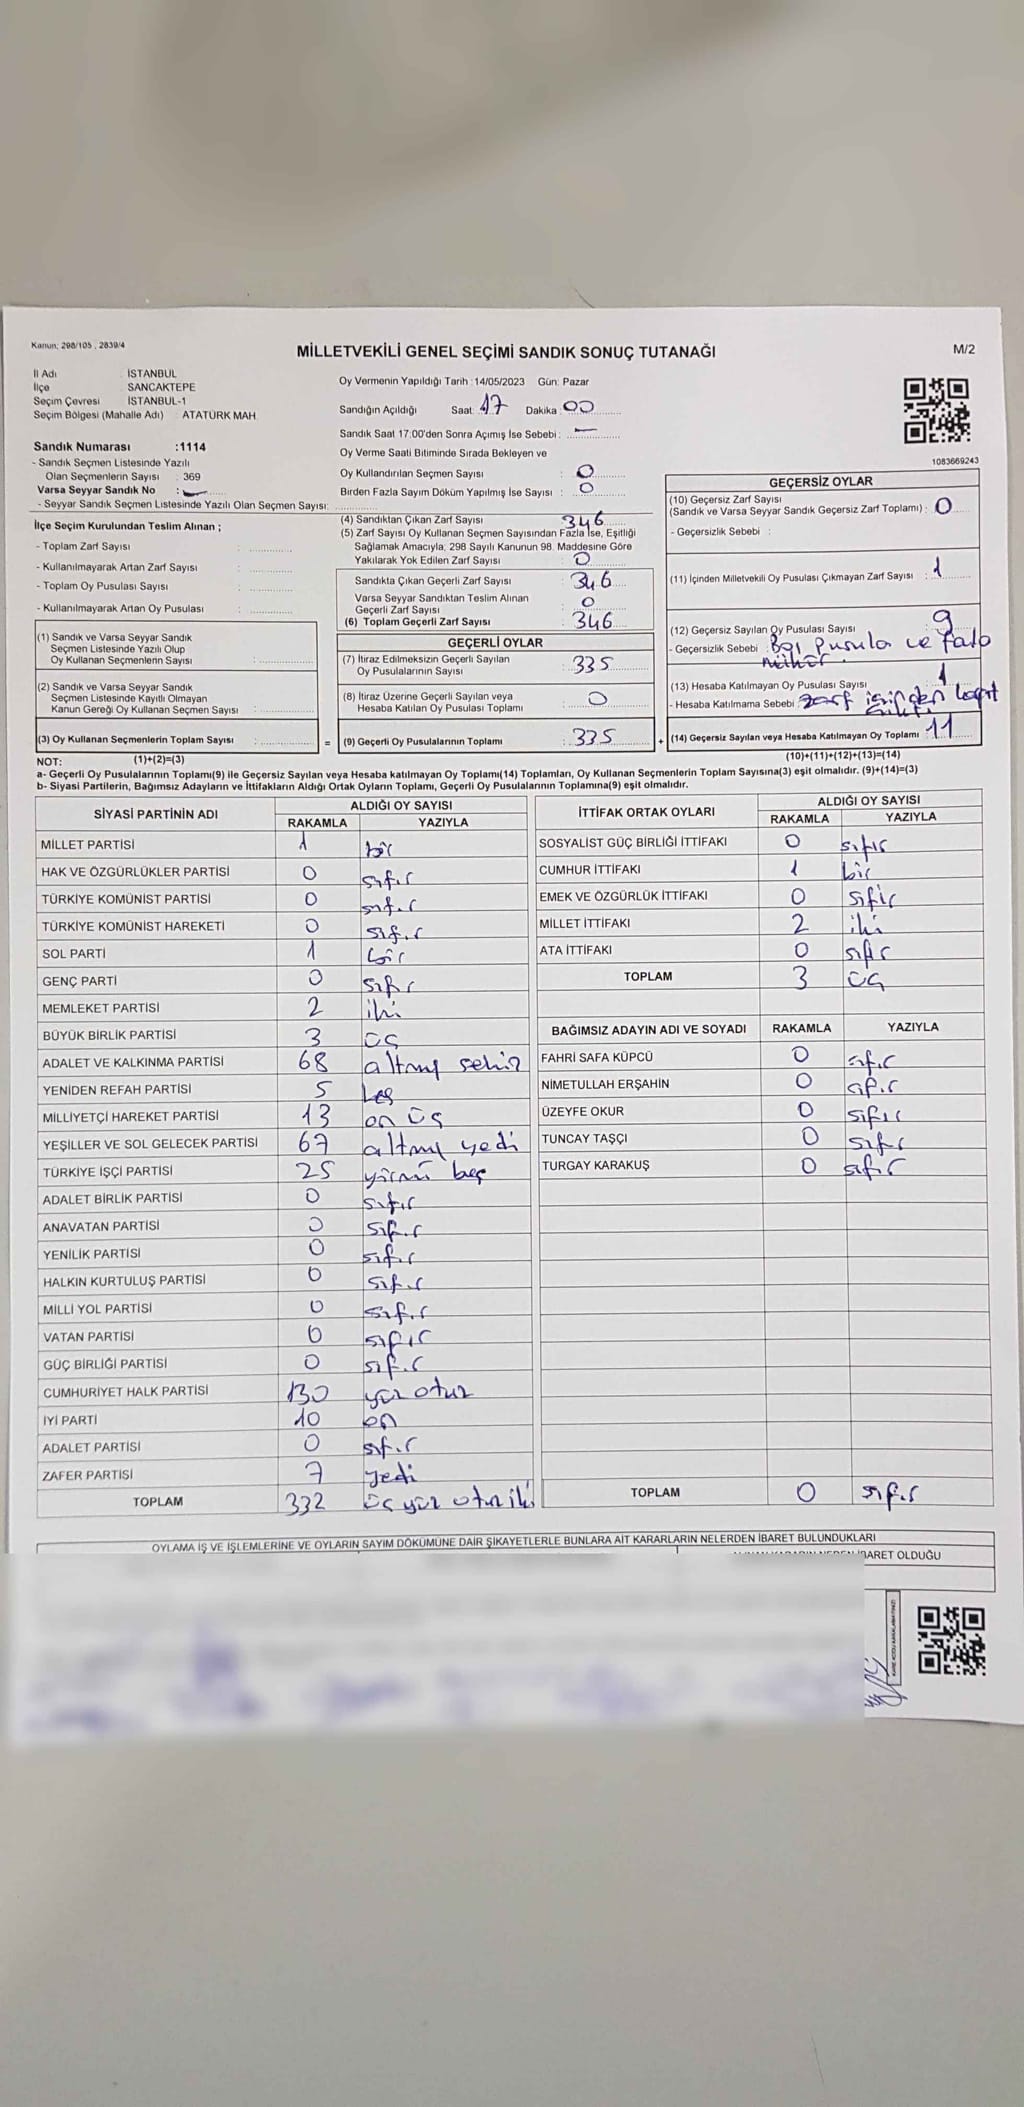 Kanun: 298/105 , 2839/4
MİLLETVEKİLİ GENEL SEÇİMİ SANDIK SONUÇ TUTANAĞI
M/2
İl Adı : İSTANBUL
İlçe : SANCAKTEPE
Seçim Çevresi : İSTANBUL-1
Seçim Bölgesi (Mahalle Adı) : ATATÜRK MAH
Sandık Numarası :1114
- Sandık Seçmen Listesinde Yazılı
Olan Seçmenlerin Sayısı : 369
Varsa Seyyar Sandık No : —
- Seyyar Sandık Seçmen Listesinde Yazılı Olan Seçmen Sayısı:
İlçe Seçim Kurulundan Teslim Alınan ;
- Toplam Zarf Sayısı :
- Kullanılmayarak Artan Zarf Sayısı :
- Toplam Oy Pusulası Sayısı :
- Kullanılmayarak Artan Oy Pusulası :
(1) Sandık ve Varsa Seyyar Sandık
Seçmen Listesinde Yazılı Olup
Oy Kullanan Seçmenlerin Sayısı :
(2) Sandık ve Varsa Seyyar Sandık
Seçmen Listesinde Kayıtlı Olmayan
Kanun Gereği Oy Kullanan Seçmen Sayısı :
(3) Oy Kullanan Seçmenlerin Toplam Sayısı : =
Oy Vermenin Yapıldığı Tarih :14/05/2023 Gün: Pazar
Sandığın Açıldığı Saat: 17 Dakika : 00
Sandık Saat 17:00'den Sonra Açımış İse Sebebi : —
Oy Verme Saati Bitiminde Sırada Bekleyen ve
Oy Kullandırılan Seçmen Sayısı : 0
Birden Fazla Sayım Döküm Yapılmış İse Sayısı : 0
(4) Sandıktan Çıkan Zarf Sayısı 346
(5) Zarf Sayısı Oy Kullanan Seçmen Sayısından Fazla İse, Eşitliği
Sağlamak Amacıyla; 298 Sayılı Kanunun 98. Maddesine Göre
Yakılarak Yok Edilen Zarf Sayısı : 0
Sandıkta Çıkan Geçerli Zarf Sayısı : 346
Varsa Seyyar Sandıktan Teslim Alınan
Geçerli Zarf Sayısı : 0
(6) Toplam Geçerli Zarf Sayısı : 346
GEÇERLİ OYLAR
(7) İtiraz Edilmeksizin Geçerli Sayılan
Oy Pusulalarının Sayısı : 335
(8) İtiraz Üzerine Geçerli Sayılan veya
Hesaba Katılan Oy Pusulası Toplamı : 0
(9) Geçerli Oy Pusulalarının Toplamı : 335 +
1083669243
GEÇERSİZ OYLAR
(10) Geçersiz Zarf Sayısı
(Sandık ve Varsa Seyyar Sandık Geçersiz Zarf Toplamı) : 0
- Geçersizlik Sebebi :
(11) İçinden Milletvekili Oy Pusulası Çıkmayan Zarf Sayısı : 1
(12) Geçersiz Sayılan Oy Pusulası Sayısı : 9
- Geçersizlik Sebebi : Boş Pusula ve fazla
mühür.
(13) Hesaba Katılmayan Oy Pusulası Sayısı : 1
- Hesaba Katılmama Sebebi : zarf içinden
(14) Geçersiz Sayılan veya Hesaba Katılmayan Oy Toplamı : 11
NOT: (1)+(2)=(3)
(10)+(11)+(12)+(13)=(14)
a- Geçerli Oy Pusulalarının Toplamı(9) ile Geçersiz Sayılan veya Hesaba katılmayan Oy Toplamı(14) Toplamları, Oy Kullanan Seçmenlerin Toplam Sayısına(3) eşit olmalıdır. (9)+(14)=(3)
b- Siyasi Partilerin, Bağımsız Adayların ve İttifakların Aldığı Ortak Oyların Toplamı, Geçerli Oy Pusulalarının Toplamına(9) eşit olmalıdır.
SİYASİ PARTİNİN ADI ALDIĞI OY SAYISI
RAKAMLA YAZIYLA
MİLLET PARTİSİ 1 bir
HAK VE ÖZGÜRLÜKLER PARTİSİ 0 sıfır
TÜRKİYE KOMÜNİST PARTİSİ 0 sıfır
TÜRKİYE KOMÜNİST HAREKETİ 0 sıfır
SOL PARTİ 1 bir
GENÇ PARTİ 0 sıfır
MEMLEKET PARTİSİ 2 iki
BÜYÜK BİRLİK PARTİSİ 3 üç
ADALET VE KALKINMA PARTİSİ 68 altmış sekiz
YENİDEN REFAH PARTİSİ 5 beş
MİLLİYETÇİ HAREKET PARTİSİ 13 on üç
YEŞİLLER VE SOL GELECEK PARTİSİ 67 altmış yedi
TÜRKİYE İŞÇİ PARTİSİ 25 yirmi beş
ADALET BİRLİK PARTİSİ 0 sıfır
ANAVATAN PARTİSİ 0 sıfır
YENİLİK PARTİSİ 0 sıfır
HALKIN KURTULUŞ PARTİSİ 0 sıfır
MİLLİ YOL PARTİSİ 0 sıfır
VATAN PARTİSİ 0 sıfır
GÜÇ BİRLİĞİ PARTİSİ 0 sıfır
CUMHURİYET HALK PARTİSİ 130 yüz otuz
İYİ PARTİ 10 on
ADALET PARTİSİ 0 sıfır
ZAFER PARTİSİ 7 yedi
TOPLAM 332 üç yüz otuz iki
İTTİFAK ORTAK OYLARI ALDIĞI OY SAYISI
RAKAMLA YAZIYLA
SOSYALİST GÜÇ BİRLİĞİ İTTİFAKI 0 sıfır
CUMHUR İTTİFAKI 1 bir
EMEK VE ÖZGÜRLÜK İTTİFAKI 0 sıfır
MİLLET İTTİFAKI 2 iki
ATA İTTİFAKI 0 sıfır
TOPLAM 3 üç
BAĞIMSIZ ADAYIN ADI VE SOYADI RAKAMLA YAZIYLA
FAHRİ SAFA KÜPCÜ 0 sıfır
NİMETULLAH ERŞAHİN 0 sıfır
ÜZEYFE OKUR 0 sıfır
TUNCAY TAŞÇI 0 sıfır
TURGAY KARAKUŞ 0 sıfır
TOPLAM 0 sıfır
OYLAMA İŞ VE İŞLEMLERİNE VE OYLARIN SAYIM DÖKÜMÜNE DAİR ŞİKAYETLERLE BUNLARA AİT KARARLARIN NELERDEN İBARET BULUNDUKLARI
OLDUĞU